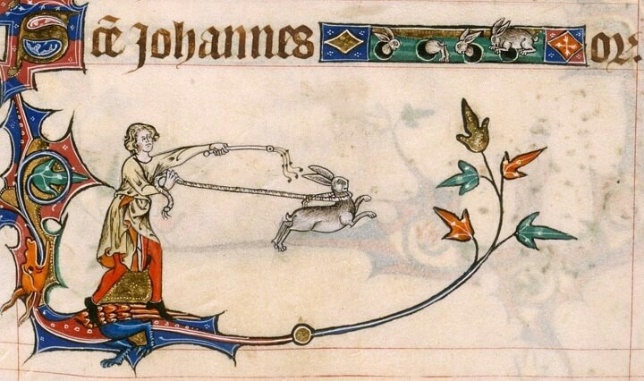 Scē Johannes or: